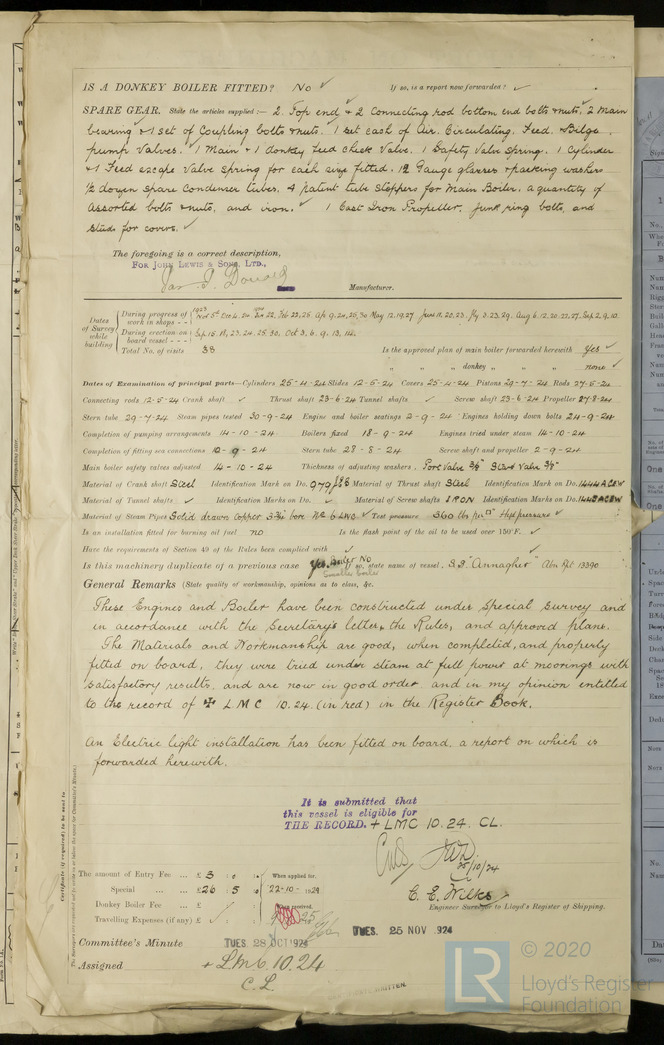 IS A DONKEY BOILER FITTED? No ✓ If so, is a report now forwarded? ✓
SPARE GEAR. State the articles supplied:— 2 Top end & 2 Connecting rod bottom end bolts & nuts, 2 Main
bearing & 1 set of Coupling bolts & nuts. 1 set each of Air, Circulating, Feed, & Bilge
pump Valves. 1 Main & 1 donkey feed check Valve. 1 Safety Valve Spring. 1 Cylinder
& 1 Feed escape Valve spring for each size fitted. 12 Gauge glasses & packing washers
½ dozen spare Condenser tubes. 4 patent tube stoppers for Main Boiler, a quantity of
assorted bolts & nuts, and iron. ✓ 1 Cast Iron Propeller. Junk ring bolts, and
studs for covers. ✓
The foregoing is a correct description,
FOR JOHN LEWIS & SONS, LTD.,
Manufacturer.
Dates of Survey while building
During progress of work in shops - -
During erection on board vessel - - - Sep. 15, 18, 23, 24, 25, 30, Oct 3, 6, 9, 13, 14.
Total No. of visits 38
Is the approved plan of main boiler forwarded herewith Yes ✓
" " " donkey " " " none ✓
Dates of Examination of principal parts—Cylinders 25-4-24 Slides 12-5-24 Covers 25-4-24 Pistons 29-7-24 Rods 27-5-24
Connecting rods 12-5-24 Crank shaft ✓ Thrust shaft 23-6-24 Tunnel shafts ✓ Screw shaft 23-6-24 Propeller 27-8-24
Stern tube 29-7-24 Steam pipes tested 30-9-24 Engine and boiler seatings 2-9-24 Engines holding down bolts 24-9-24
Completion of pumping arrangements 14-10-24 Boilers fixed 18-9-24 Engines tried under steam 14-10-24
Completion of fitting sea connections 10-9-24 Stern tube 28-8-24 Screw shaft and propeller 2-9-24
Main boiler safety valves adjusted 14-10-24 Thickness of adjusting washers Port Valve 3/8" Star'd Valve 3/8"
Material of Crank shaft Steel Identification Mark on Do. Material of Thrust shaft Steel Identification Mark on Do. 1444 ACEW
Material of Tunnel shafts ✓ Identification Marks on Do. ✓ Material of Screw shafts IRON Identification Marks on Do. 1445 ACEW
Material of Steam Pipes Solid drawn Copper bore ✓ Test pressure 360 lbs per □" Hyd pressure ✓
Is an installation fitted for burning oil fuel no Is the flash point of the oil to be used over 150°F. ✓
Have the requirements of Section 49 of the Rules been complied with ✓
Is this machinery duplicate of a previous case Yes. Boiler No If so, state name of vessel S.S. "Annagher" Abn Rpt 13390
Smaller boiler
General Remarks (State quality of workmanship, opinions as to class, &c.
These Engines and Boiler have been constructed under Special Survey and
in accordance with the Secretary's letter, the Rules, and approved plans.
The Materials and Workmanship are good, when completed, and properly
fitted on board, they were tried under steam at full power at moorings with
satisfactory results, and are now in good order, and in my opinion entitled
to the record of ✠ L M C 10.24. (in red) in the Register Book.
An Electric light installation has been fitted on board, a report on which is
forwarded herewith.
It is submitted that
this vessel is eligible for
THE RECORD. + LMC 10.24. CL.
25/10/24
The amount of Entry Fee ... £ 3 : 0 : When applied for,
Special ... ... £ 26 : 5 : 22-10-1924
Donkey Boiler Fee ... £ : When received,
Travelling Expenses (if any) £ ✓ :
C. E. Wilks
Engineer Surveyor to Lloyd's Register of Shipping.
Committee's Minute TUES. 28 OCT 1924 TUES. 25 NOV 1924
Assigned + L.M.C. 10.24
C.L.
© 2020
LR Lloyd's Register
Foundation